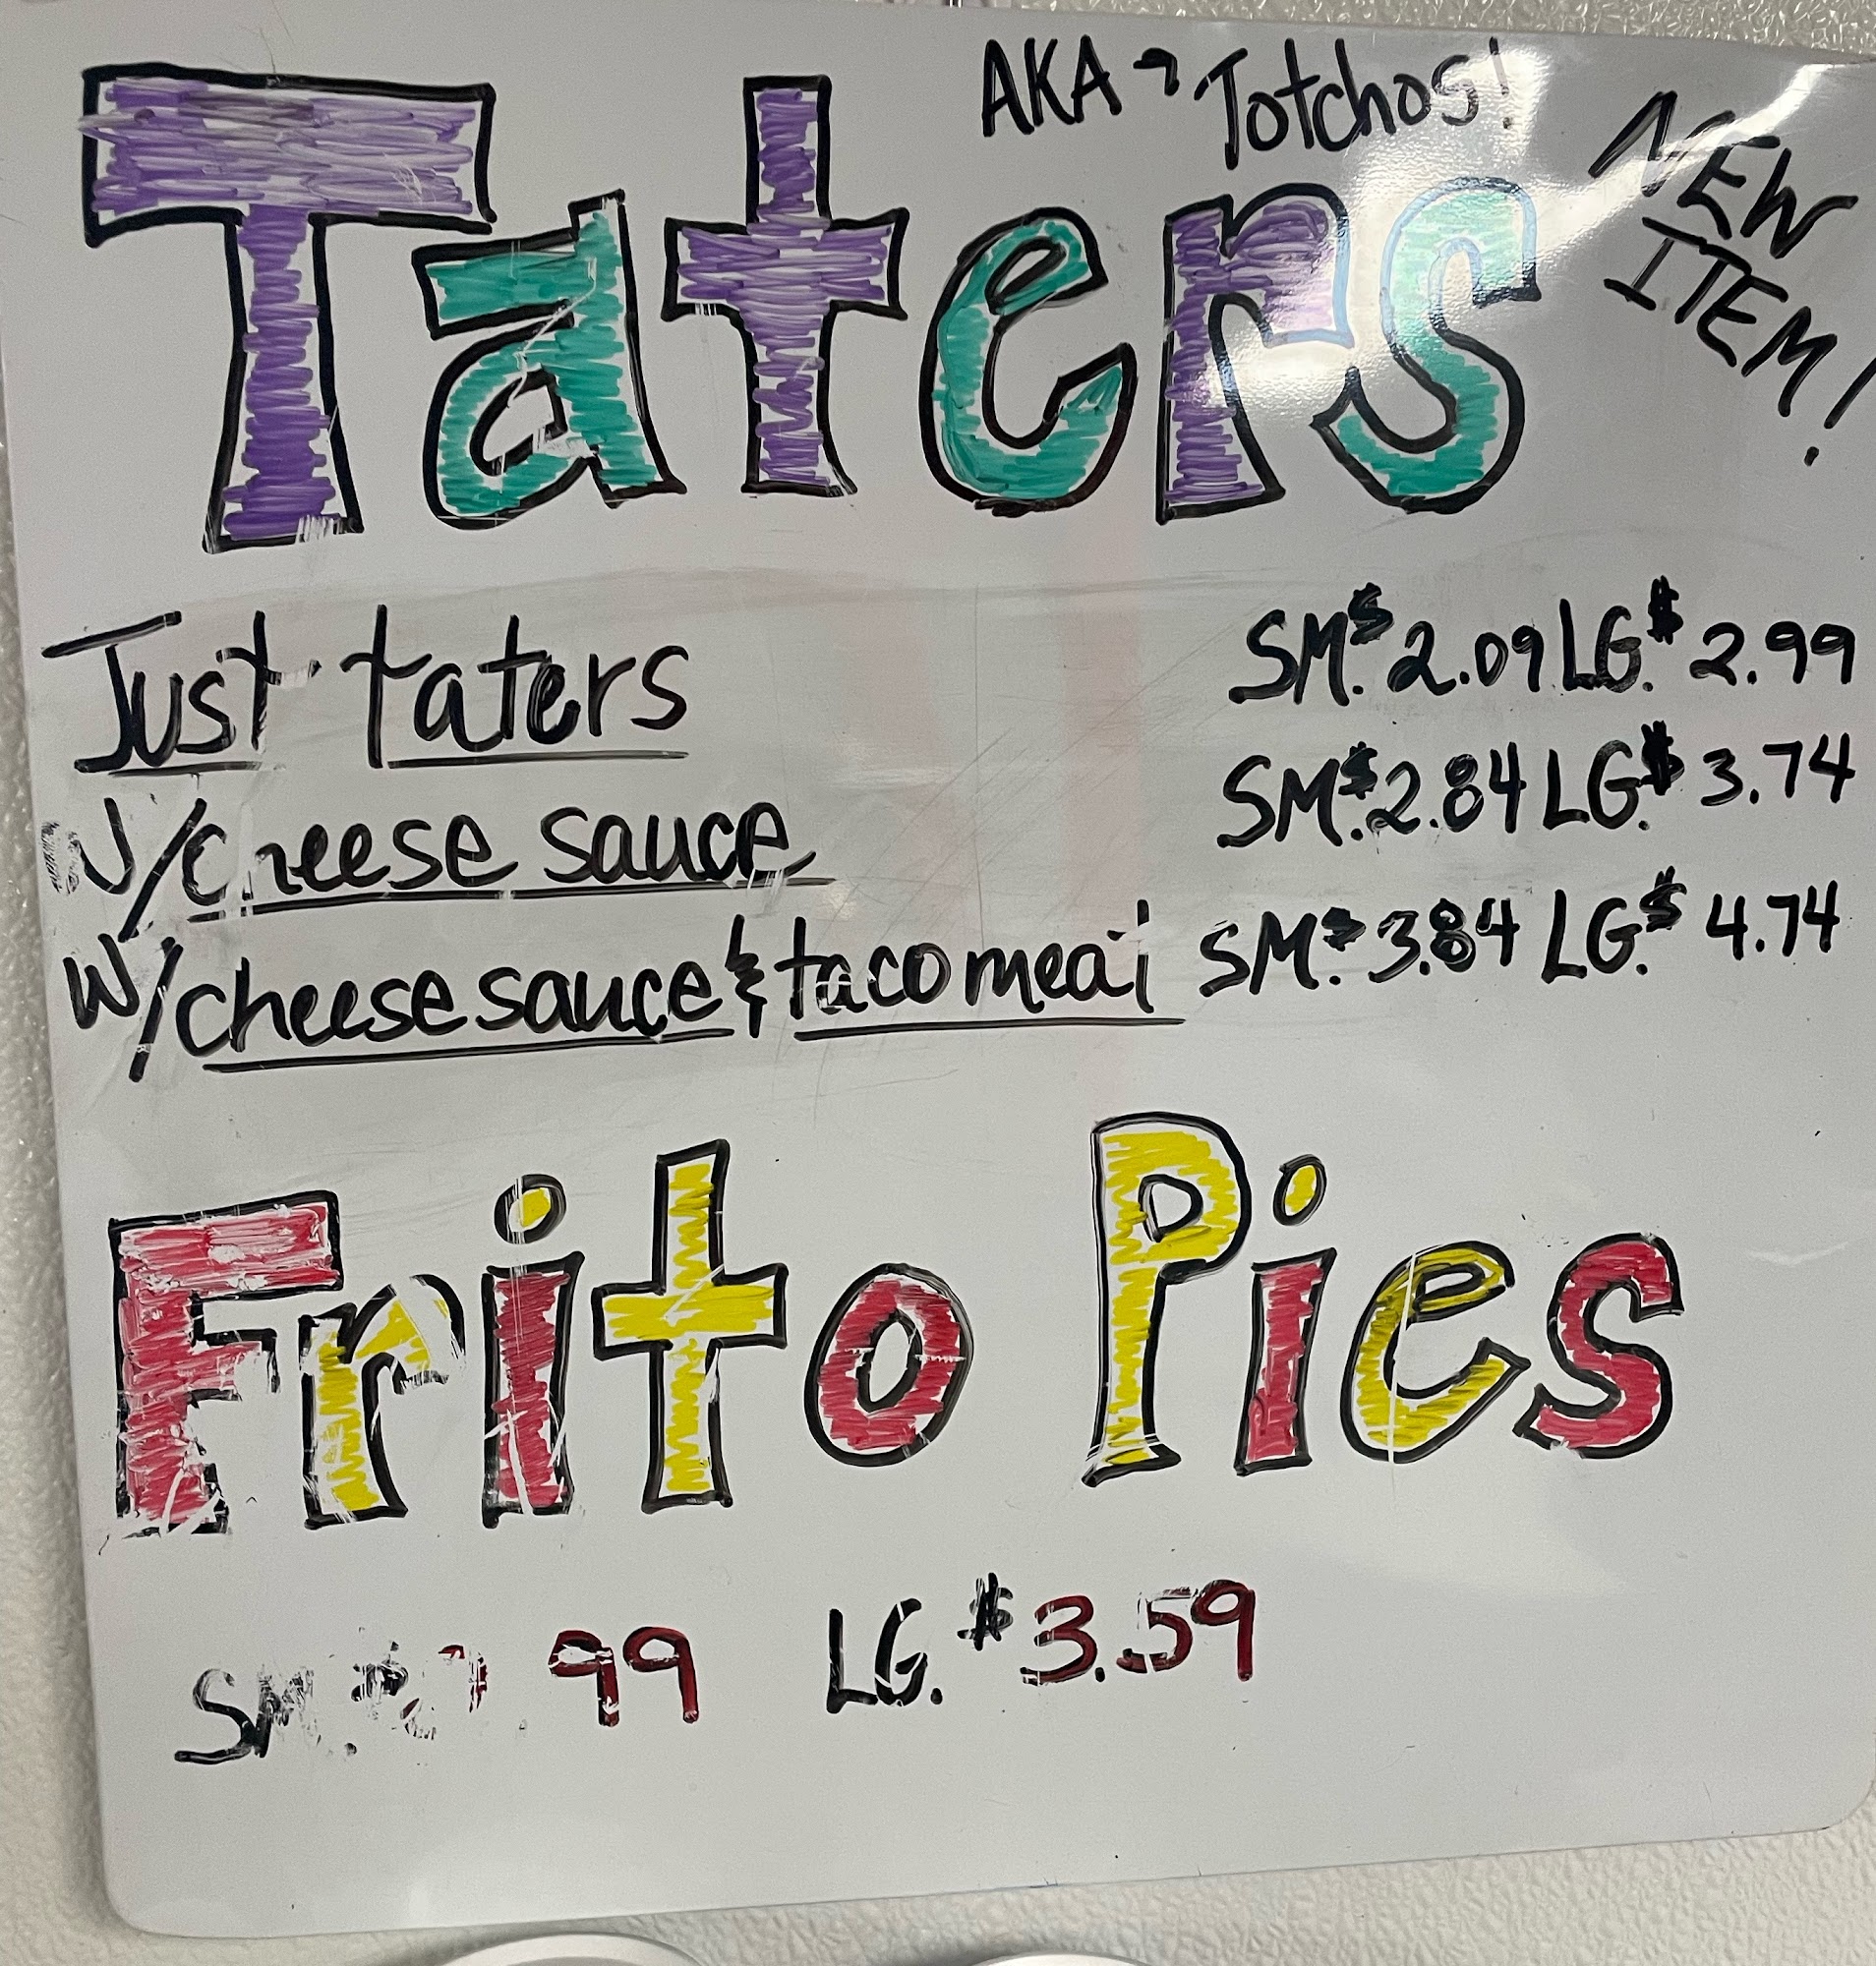 AKA → Totchos!
Taters
NEW
ITEM!
Just taters SM. $2.09 LG. $2.99
W/cheese sauce SM. $2.84 LG. $3.74
W/cheese sauce & taco meat SM. $3.84 LG. $4.74
Frito Pies
SM. 99 LG. $3.59